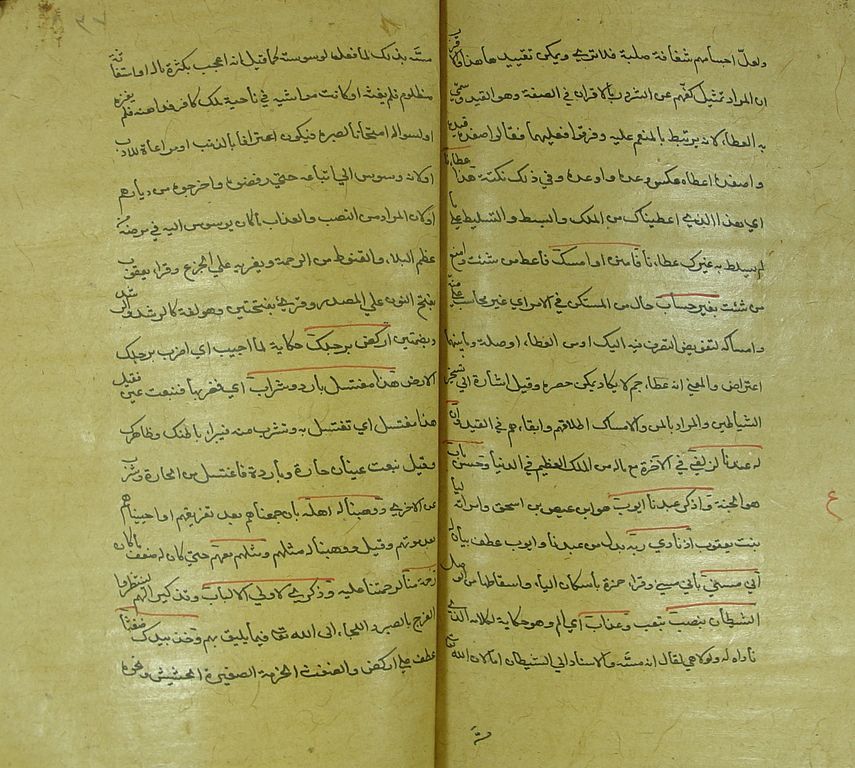 ولعل اجسامهم شفافة صلبة فلا ترى ويمكن تقييدها هذا والاقرب
ان المراد تمثيل كفهم عن الشرور بالاقران في الصفد وهو القيد وسمي
به العطاء لانه يرتبط بالمنعم عليه وفرقوا فعليهما فقالوا صفده قيده
واصفده اعطاه عكس وعد واوعد وفي ذلك نكتة هذا عطاؤنا
اي هذا الذي اعطيناك من الملك والبسط والتسليط على ما
لم يسلط به غيرك عطاؤنا فامنن او امسك فاعط من شئت وامنع
من شئت بغير حساب حال من المستكن في الامر اي غير محاسب على منه
وامساكه لتفويض التصرف فيه اليك او من العطاء او صلة وما بينهما
اعتراض والمعنى انه عطاء جم لا يكاد يمكن حصره وقيل اشارة الى تسخير
الشياطين والمراد بالمن والامساك اطلاقهم وابقاءهم في القيد وان
له عندنا لزلفى في الآخرة مع ماله من الملك العظيم في الدنيا وحسن مآب
هو الجنة واذكر عبدنا ايوب هو ابن عيص بن اسحق وامرأته ليا
بنت يعقوب اذ نادى ربه بدل من عبدنا وايوب عطف بيان له
أني مسني بأني مسني وقرأ حمزة بأسكان الياء واسقاطها من الوصل
الشيطان بنصب بتعب وعذاب اي الم وهو حكاية لكلامه الذي
ناداه له ولولا هي لقال انه مسه والاسناد الى الشيطان اما لان الله
مسه بذلك لما فعل بوسوسته كما قيل انه اعجب بكثرة ماله او استغاثه
مظلوم فلم يغثه او كانت مواشيه في ناحية ملك كافر فداهنه فلم يغزه
او لسؤاله امتحانا لصبره فيكون اعترافا بالذنب او مراعاة للادب
او لانه وسوس الى اتباعه حتى رفضوه واخرجوه من ديارهم
او لان المراد من النصب والعذاب ما كان يوسوس اليه في مرضه من
عظم البلاء والقنوط من الرحمة ويغريه علي الجزع وقرأ يعقوب
بفتح النون علي المصدر وقرئ بفتحتين وهو لغة كالرشد والرشد
وبضمتين اركض برجلك حكاية لما اجيب اي اضرب برجلك
الارض هذا مغتسل بارد وشراب اي فضربها فنبعت عين فقيل
هذا مغتسل اي تغتسل به وتشرب منه فيبرأ باطنك وظاهرك
وقيل نبعت عينان حارة وباردة فاغتسل من الحارة وشرب
من الاخرى ووهبنا له اهله بان جمعناهم بعد تفرقهم او احييناهم
بعد موتهم وقيل ووهبنا له مثلهم ومثلهم معهم حتى كان له ضعف ما كان
رحمة منا لرحمتنا عليه وذكرى لاولي الالباب وتذكيرا لهم لينتظروا
الفرج بالصبر واللجاء الى الله تعا فيما يليق بهم وخذ بيدك ضغثا
عطف على اركض والضغث الحزمة الصغيرة من الحشيش ونحوه